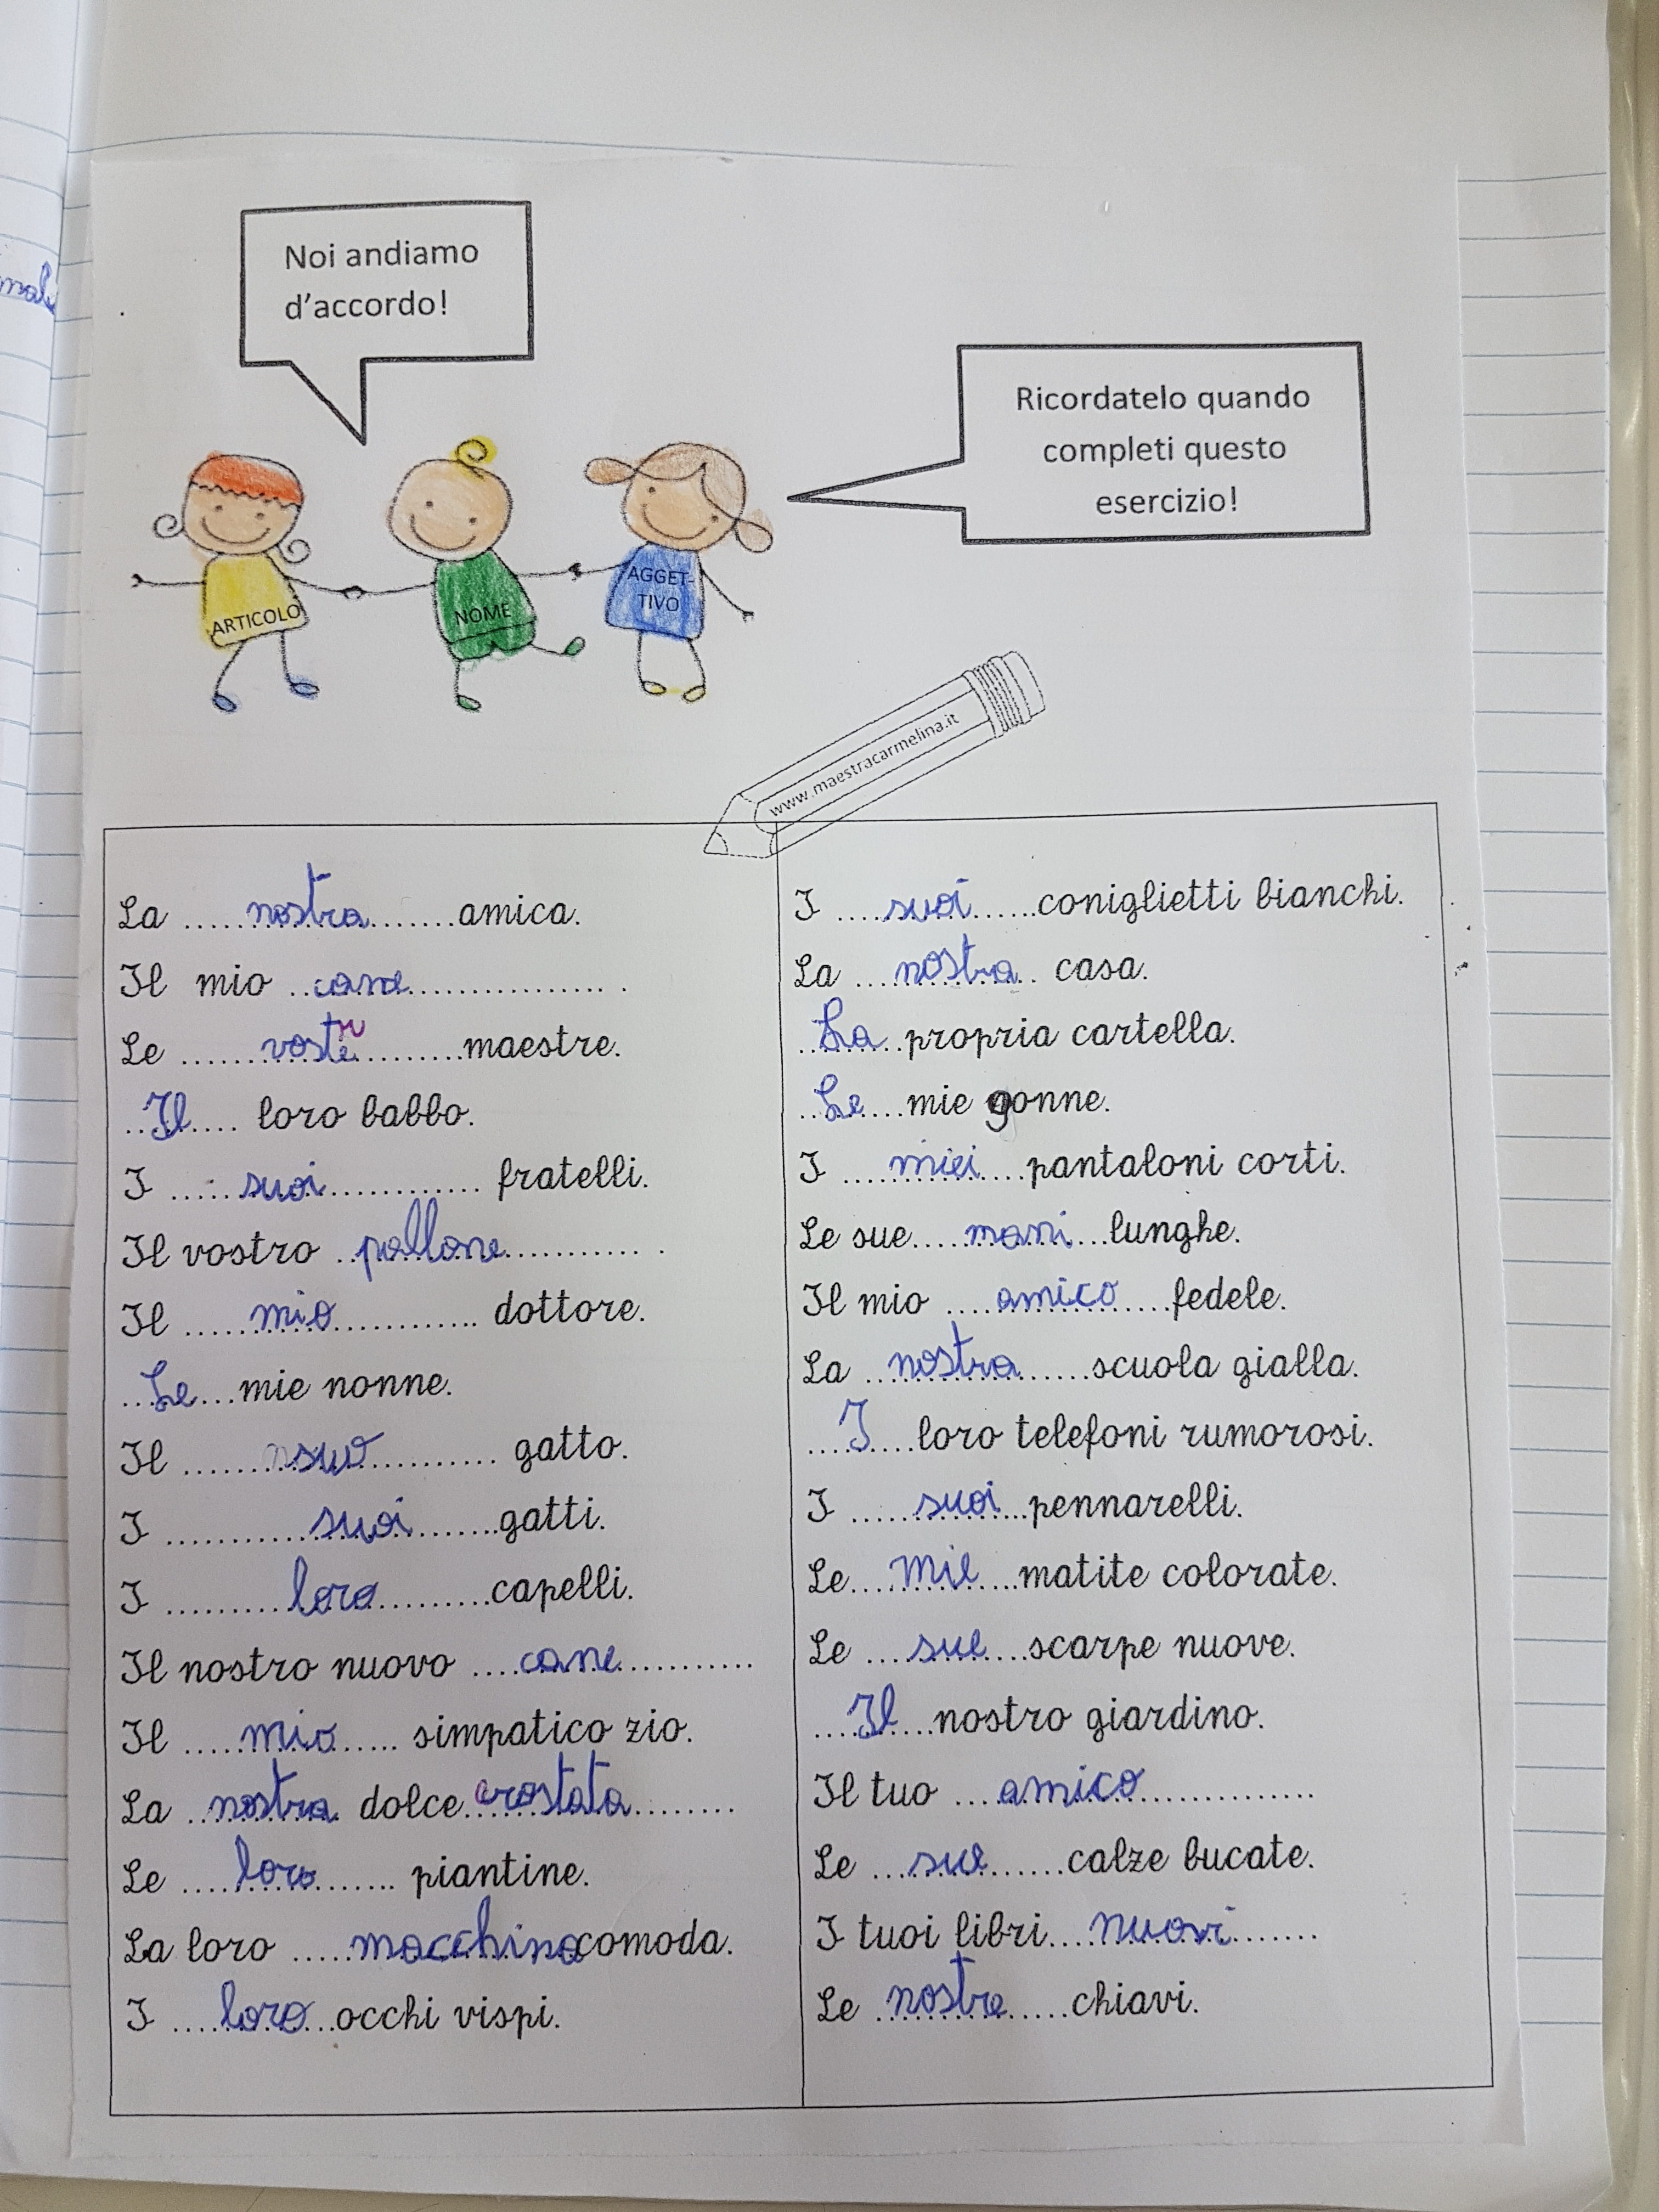 Noi andiamo
d'accordo!
Ricordatelo quando
completi questo
esercizio!
ARTICOLO
NOME
AGGET-
TIVO
www.maestracarmelina.it
La ....nostra.......amica.
Il mio ..cane.................. .
Le .......vostre.........maestre.
..Il.... loro babbo.
I .....suoi............ fratelli.
Il vostro ..pallone............ .
Il .....mio............. dottore.
..Le...mie nonne.
Il .........suo............ gatto.
I ............suoi........gatti.
I ..........loro..........capelli.
Il nostro nuovo ....cane............
Il .....mio..... simpatico zio.
La ..nostra. dolce..crostata........
Le ....loro...... piantine.
La loro .....macchina comoda.
I ....loro...occhi vispi.
I ....suoi......coniglietti bianchi.
La ...nostra.. casa.
..La..propria cartella.
..Le....mie gonne.
I ....miei....pantaloni corti.
Le sue....mani...lunghe.
Il mio ....amico....fedele.
La ..nostra......scuola gialla.
....I....loro telefoni rumorosi.
I .....suoi...pennarelli.
Le....mie.....matite colorate.
Le ....sue....scarpe nuove.
....Il....nostro giardino.
Il tuo ....amico..............
Le ...sue.......calze bucate.
I tuoi libri....nuovi........
Le ..nostre.....chiavi.